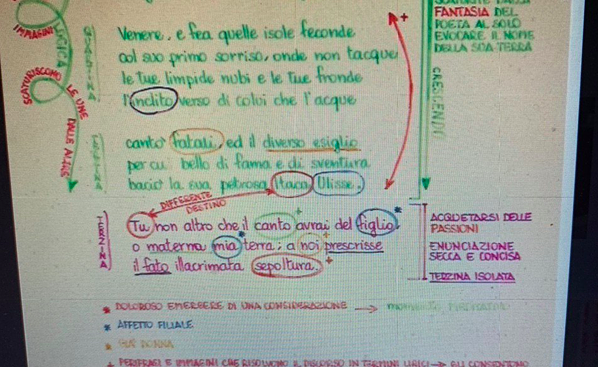 IMMAGINI
LOGICA
SCATURISCONO
LE UNE
DALLE ALTRE
QUARTINA
Venere, e fea quelle isole feconde
col suo primo sorriso, onde non tacque
le tue limpide nubi e le tue fronde
l'inclito verso di colui che l'acque
TERZINA
cantò fatali, ed il diverso esiglio
per cui bello di fama e di sventura
baciò la sua petrosa Itaca Ulisse.
DIFFERENTE
DESTINO
TERZINA
Tu non altro che il canto avrai del figlio,
o materna mia terra; a noi prescrisse
il fato illacrimata sepoltura.
FANTASIA DEL
POETA AL SOLO
EVOCARE IL NOME
DELLA SUA TERRA
CRESCENDO
ACQUETARSI DELLE
PASSIONI
ENUNCIAZIONE
SECCA E CONCISA
TERZINA ISOLATA
* DOLOROSO EMERGERE DI UNA CONSIDERAZIONE →
* AFFETTO FILIALE
*
+ PERIFRASI E IMMAGINI CHE RISOLVONO IL DISCORSO IN TERMINI LIRICI → GLI CONSENTONO